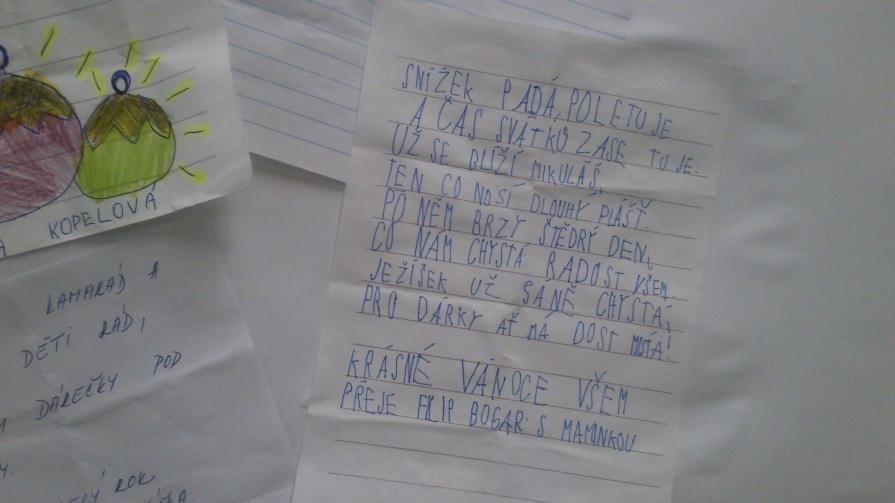 KOPELOVÁ
KAMARÁD A
DĚTI RÁD,
DÁREČKY POD
ROK
SNÍŽEK PADÁ, POLETUJE
A ČAS SVÁTKŮ ZASE TU JE.
UŽ SE BLÍŽÍ MIKULÁŠ,
TEN CO NOSÍ DLOUHÝ PLÁŠŤ.
PO NĚM BRZY ŠTĚDRÝ DEN,
CO NÁM CHYSTÁ RADOST VŠEM.
JEŽÍŠEK UŽ SANĚ CHYSTÁ,
PRO DÁRKY AŤ MÁ DOST MÍSTA!
KRÁSNÉ VÁNOCE VŠEM
PŘEJE FILIP BOGAR S MAMINKOU